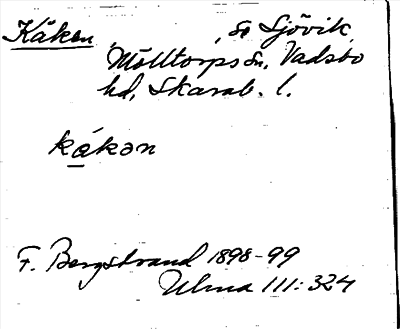 Kåken, so Sjövik,
Mölltorps sn, Vadsbo
hd, Skarab. l.
kåkən
F. Bergstrand 1898-99
Ulma 111:324